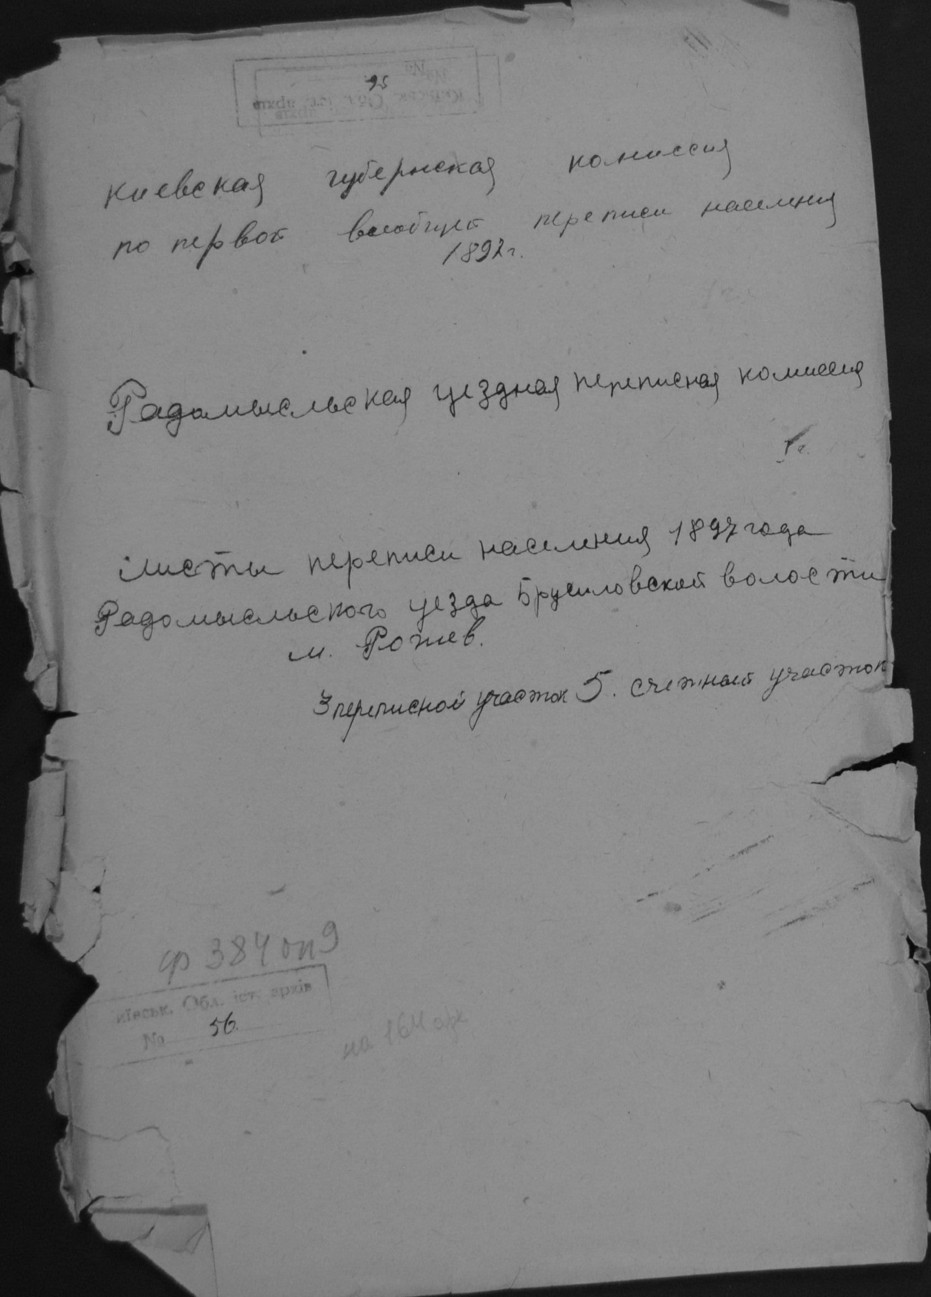 95
Киевская губернская комиссия
по первой всеобщей переписи населения
1897г.
Радомысльская уездная переписная комиссия
Листы переписи населения 1897 года
Радомысльского уезда Брусиловской волости
м. Рожев.
3 переписной участок 5. счетный участок
ф 384 оп 9
Київськ. Обл. іст. архів
No 56.
на 164 арк